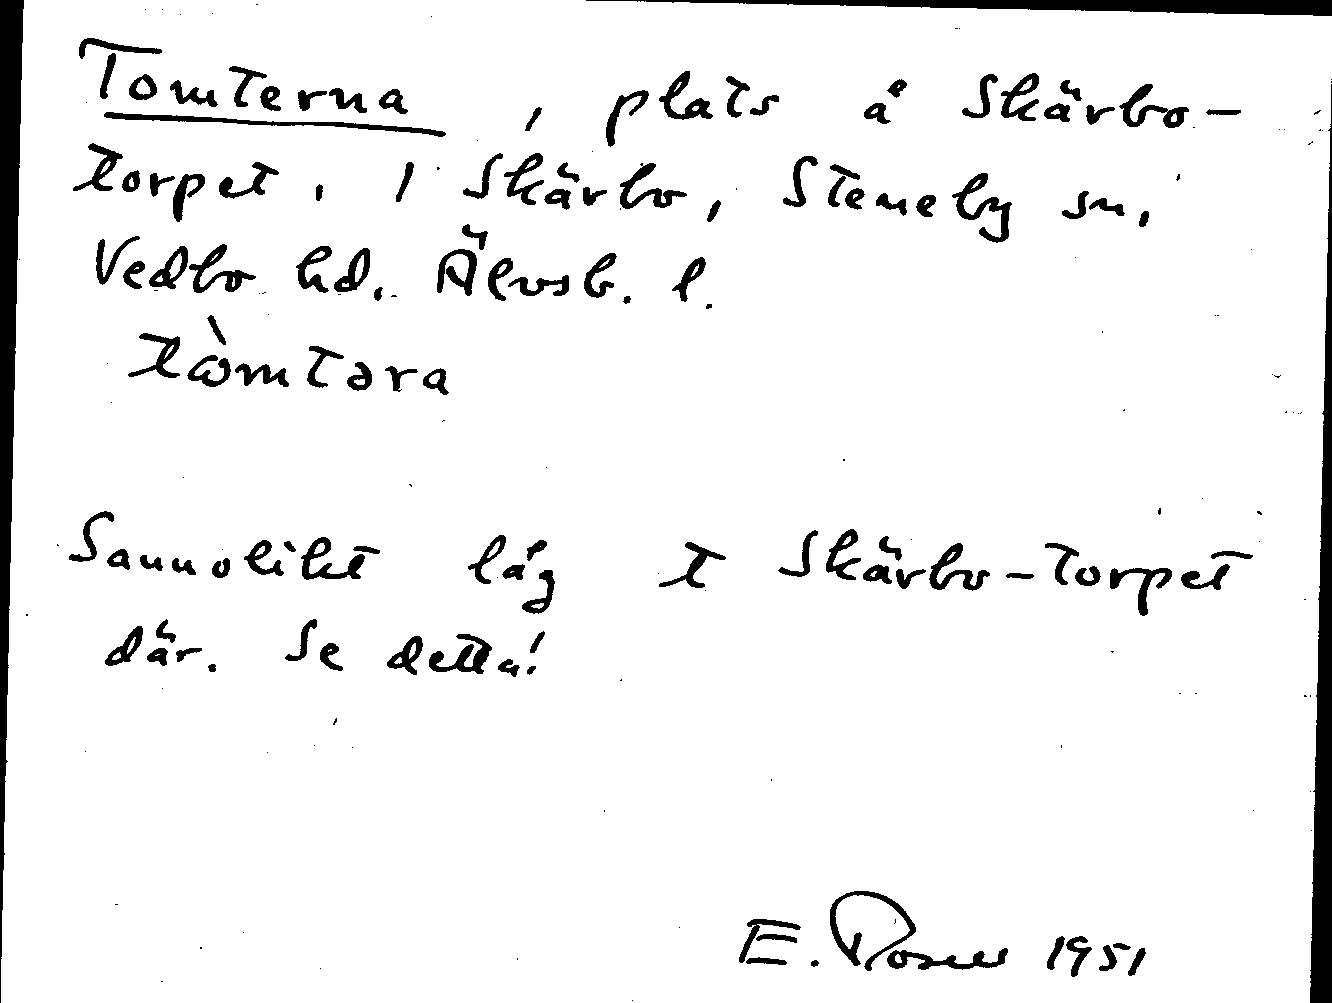 Tomterna, plats å Skärbo-
torpet, 1 Skärbo, Steneby sn,
Vedbo hd. Älvsb. l.
tὼmtəra
Sannolikt låg t Skärbo-torpet
där. Se detta!
E. Rosell 1951